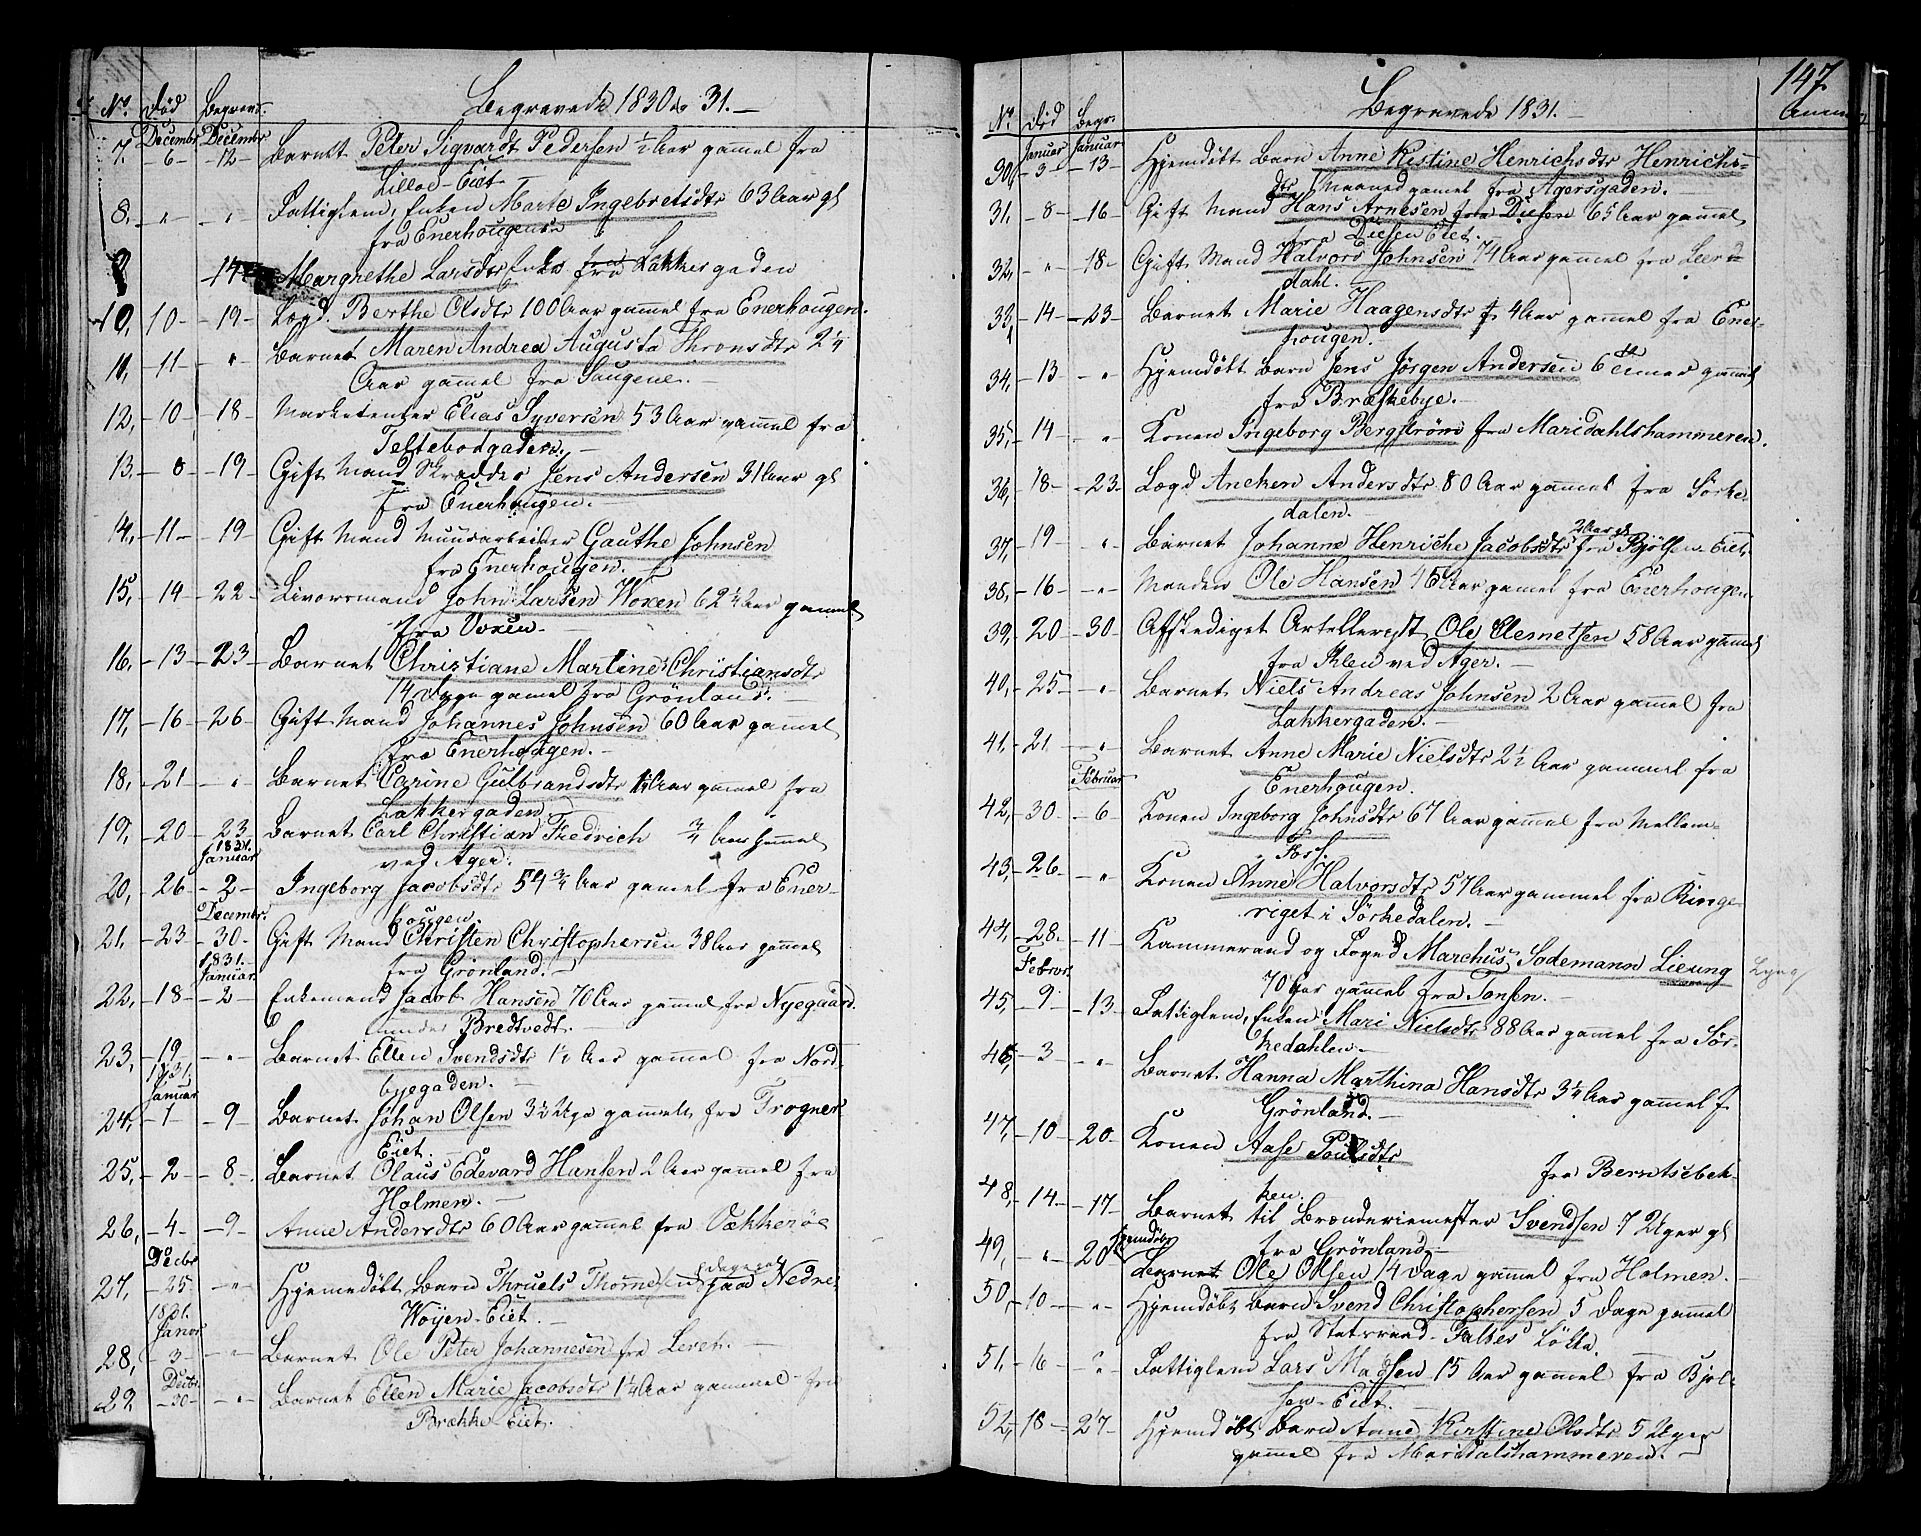 Begravede 1830 & 31.
No. Død Begrav.
Decembr Decembr
7. 6 12 Barnet Peter Sigvardt Pedersen ½ Aar gamel fra
Lilloe-Eiet
8. " " Fattiglem, Enken Marte Ingebretsdtr 63 Aar gl
fra Enerhougen
9 14 Margrethe Larsdtr Enke fra Lakkergaden
10, 10 19 Lægd. Berthe Olsdtr 100 Aar gamel fra Enerhougen.
11, 11 " Barnet Maren Andrea Augusta Thronsdtr 2¼
Aar gamel fra Saugene.
12, 10 18 Marketenter Elias Syversen 53 Aar gammel fra
Teltebodgaden.
13. 8 19 Gift Mand Skrædder Jens Andersen 31 Aar gl
fra Enerhougen.
14, 11 19 Gift Mand Muurarbeider Gauthe Johnsen
fra Enerhougen.
15, 14 22 Livorsmand John Larsen Voxen 62¼ Aar gamel
fra Voxen
16. 13 23 Barnet Christiane Martine Christiansdtr
14 Dage gamel fra Grönland.
17, 16 26 Gift Mand Johannes Johnsen 60 Aar gamel
fra Enerhougen.
18, 21 " Barnet Carine Gulbrandsdtr 1½ Aar gamel fra
Lakkergaden
19, 20 23 Barnet Carl Christian Fredrich ¾ Aar gammel
ved Ager.
1831. Januar
20, 26 2 Ingeborg Jacobsdtr 54¾ Aar gamel fra Ener-
hougen.
Decembr.
21, 23 30 Gift Mand Christen Christophersen 38 Aar gamel
fra Grönland.
1831. Januar
22, 18 2 Enkemand Jacob Hansen 70 Aar gamel fra Nyegaard
under Bredtvedt.
23, 19 " Barnet Ellen Svendsdtr 1½ Aar gamel fra Nord-
byegaden.
1831. Januar
24, 1 9 Barnet Johan Olsen 3½ Uge gammel fra Frogner
Eiet.
25, 2 8 Barnet Olaus Edevard Hansen 2 Aar gamel fra
Holmen.
26, 4 9 Anne Andersdtr 60 Aar gammel fra Vækkeröe
Decbr
27, 25 " Hjemedøbt Barn Thruels Thornesen fra Nedre
Woyen-Eiet.
1831. Januar
28, 3 " Barnet Ole Peter Johannesen fra Leret.
Decbr.
29 30 " Barnet Ellen Marie Jacobsdtr 1¼ Aar gammel fra
Brække Eiet.
147
Begravede 1831.
No. Død Begr.
Januar Januar
30, 3 13 Hjemdöbt Barn Anne Kestine Henrichsdtr Henrichs-
dtr 1 Maaned gamel fra Agersgaden.
31, 8 16 Gift Mand Hans Arnesen fra Diesen 65 Aar gammel
fra Diesen Eiet.
32, " 18 Gift Mand Halvors Johnsen 74 Aar gamel fra Leer-
dahl.
33, 14 23 Barnet Marie Haagensdtr 4 Aar gammel fra Ener-
hougen.
34, 13 " Hjemdöbt Barn Jens Jörgen Andersen 6 Timer gamel
fra Bræskebye.
35, 14 " Konen Ingeborg Bergström fra Maridahlshammeren.
36, 18 23 Lægd Ancken Andersdtr 80 Aar gammel fra Sörke-
dalen.
37, 19 " Barnet Johanne Henriche Jacobsdtr 2 Aar gl fra Bjölsen-Eiet
38, 16 " Manden Ole Hansen 45 Aar gamel fra Enerhougen
39, 20 30 Afskediget Artellerist Ole Clemetsen 58 Aar gamel
fra Ihlen ved Ager.
40, 25 " Barnet Niels Andreas Johnsen 2 Aar gammel fra
Lakkergaden.
41, 21 " Barnet Anne Marie Nielsdtr 2½ Aar gammel fra
Enerhougen.
Februar
42, 30 6 Konen Ingeborg Johnsdtr 67 Aar gammel fra Mellem-
Fos.
43, 26 " Konen Anne Halvorsdtr 57 Aar gammel fra Ringe-
riget i Sörkedalen.
44, 28 11 Kammerraad og Foged Marchus Sodemann Lieung Lyng
70 Aar gammel fra Tonsen.
Febror.
45, 9 13 Fattiglem, Enken Mari Nielsdtr 88 Aar gammel fra Sör-
kedahlen
46, 3 " Barnet Hanna Marthina Hansdtr 3½ Aar gammel f
Grönland.
47, 10 20 Konen Aase Poulsdtr
fra Berntsebek-
ken.
48, 14 17 Barnet til Brænderiemester Svendsen 7 Uger gl
fra Grönland
49, " 20 Hjemdöbt Barnet Ole Olsen 14 Dage gammel fra Holmen.
50, 10 " Hjemdöbt Barn Svend Christophersen 5 Dage gamel
fra Statsraad Falses Lökke.
51, 16 " Fattiglem Lars Madsen 15 Aar gammel fra Bjöl-
sen-Eiet.
52, 18 27 Hjemdöbt Barn Anne Kirstine Olsdtr 5 Uger
gammel fra Maridalshammeren.